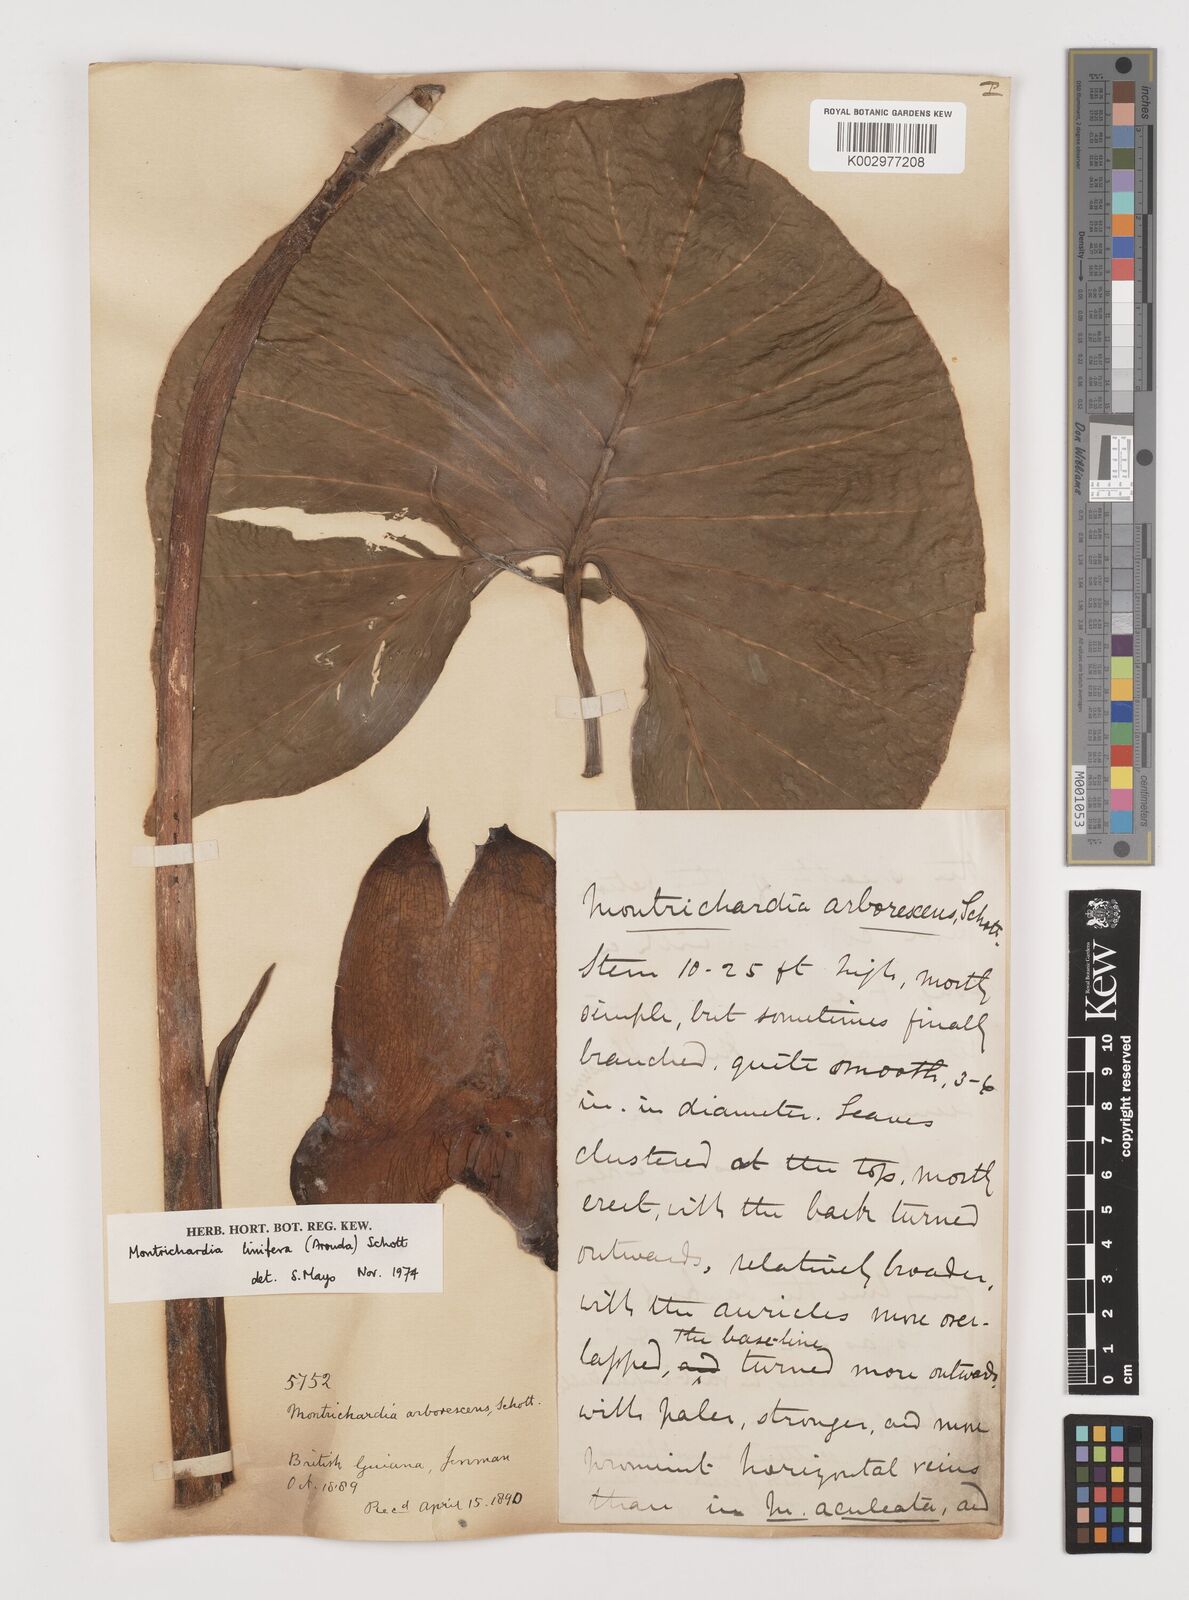 ROYAL BOTANIC GARDENS KEW
K002977208
Montrichardia arborescens, Schott.
Stem 10-25 ft high, mostly
simple, but sometimes finally
branched, quite smooth, 3-6
in. in diameter. Leaves
clustered at the top, mostly
erect, with the back turned
outwards, relatively broader,
with the auricles more over-
lapped, and the base-line turned more outwards,
with paler, stronger, and more
prominent horizontal veins
than in M. aculeata, and
HERB. HORT. BOT. REG. KEW.
Montrichardia linifera (Arruda) Schott
det. S. Mayo Nov. 1974
5752
Montrichardia arborescens, Schott.
British Guiana, Jenman
Oct. 1889
Rec'd April 15. 1890
inches
centimeters
Density
Don Williams
M001053
Royal Botanic Gardens
Kew
0 1 2 3 4 5 6 7 8 9 10 cm
copyright reserved